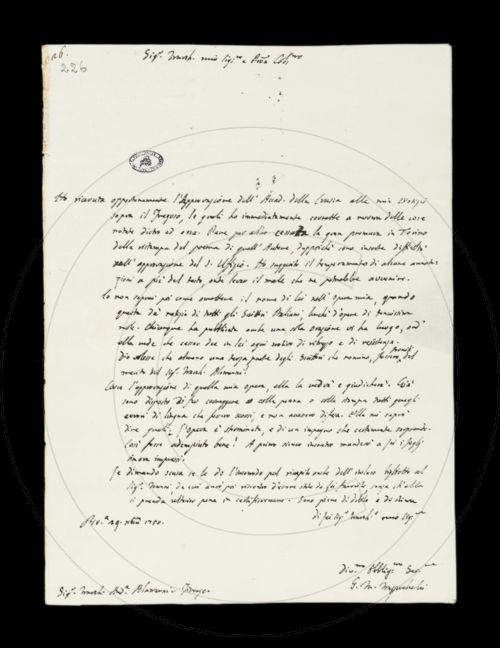 226.
226
Sig.r March. mio Sig.re e Pron Col.mo
Ho ricevuta opportunamente l'Approvazione dell'Accad. della Crusca alle mie Notizie
sopra il Fregoso, le quali ho immediatamente corrette a norma delle cose
notate dietro ad essa. Pare per altro cessata la gran premura in Torino
della ristampa del poema di quell'Autore, dappoichè sono insorte difficoltà
nell'approvazione del S. Offizio. Ho suggerito il temperamento di alcune annota-
zioni a piè del testo, onde levar il male che ne potrebbe avvenire.
Io non saprei poi come ommettere il nome di lei nell'Opera mia, quando
questa dà notizie di tutti gli Scrittori Italiani, anche d'opere di tenuissima
mole. Chiunque ha pubblicata anche una sola orazione vi ha luogo, onde
ella vede che cesser dee in lei ogni motivo di ritrosia e di resistenza.
Dio volesse che almeno una terza parte degli Scrittori che nomino, fossero forniti del
merito del Sig.r March. Alamanni!
Circa l'approvazione di quella mia opera, ella la vedrà e giudicherà. Già
sono disposto di far correggere o colla penna o colla stampa tutti quegli
errori di lingua che fossero scorsi e non avessero difesa. Ella mi saprà
dire quali. L'Opera è sterminata, e di un impegno che certamente sorprende.
Così fosse adempiuto bene! A primo sicuro incontro manderò a Lei i fogli
finora impressi.
Le dimando scusa se le do l'incomodo pel ricapito anche dell'incluso biglietto al
Sig.r da cui avrò poi riscontro d'essere stato da Lei favorito senza ch'ella
si prenda ulterior pena in certificarmene. Sono pieno di debito e di stima
di Lei Sig.r March. mio Sig.re
Bres.a 29. 1750.
Div.mo Obblig.mo Ser.re
G. M. Mazzuchelli
Sig.r March. And.a Alamanni Firenze